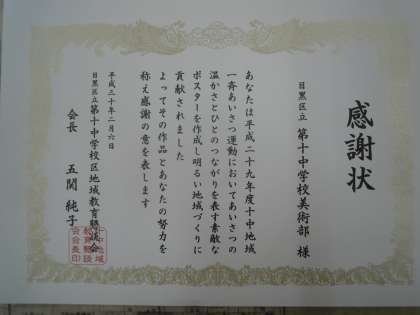 感謝状
目黒区立 第十中学校美術部 様
あなたは平成二十九年度十中地域
一斉あいさつ運動においてあいさつの
温かさとひとのつながりを表す素敵な
ポスターを作成し明るい地域づくりに
貢献されました
よってその作品とあなたの努力を
称え感謝の意を表します
平成三十年二月六日
目黒区立第十中学校区地域教育懇談会
会長 五関 純子
十中地域
教育懇談
会会長印